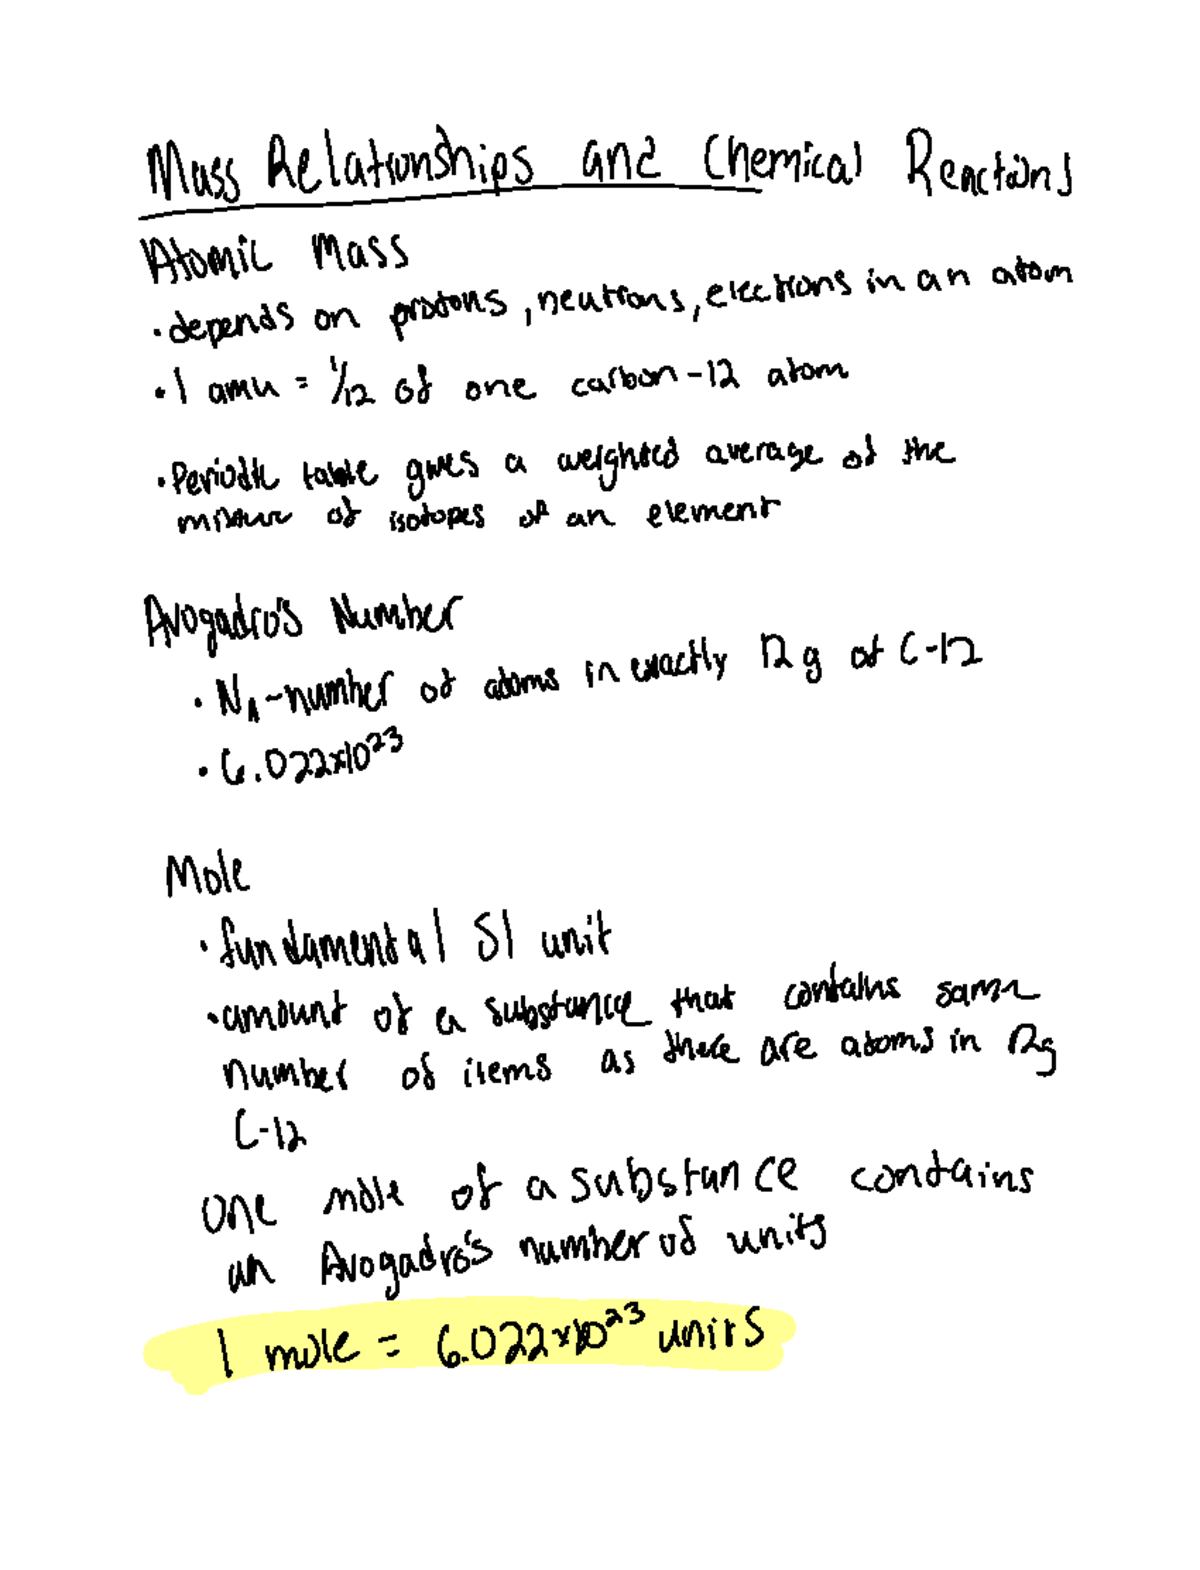 Mass Relationships and Chemical Reactions
Atomic Mass
• depends on protons, neutrons, electrons in an atom
• 1 amu = 1/12 of one carbon-12 atom
• Periodic table gives a weighted average of the
mixture of isotopes of an element
Avogadro's Number
• N_A - number of atoms in exactly 12g of C-12
• 6.022x10²³
Mole
• fundamental SI unit
• amount of a substance that contains same
number of items as there are atoms in 12g
C-12
one mole of a substance contains
an Avogadro's number of units
1 mole = 6.022x10²³ units